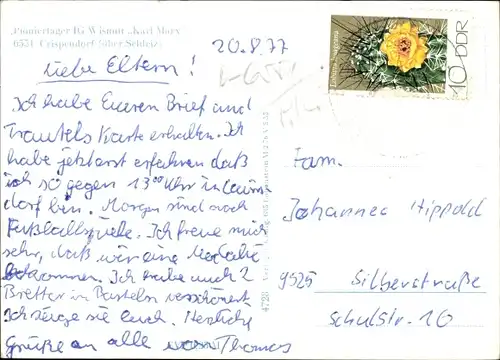 Pionierlager IG Wismut „Karl Marx"
6551 Crispendorf über Schleiz
20.8.77
Liebe Eltern!
Ich habe Eueren Brief und
Trautels Karte erhalten. Ich
habe jetzt erst erfahren daß
ich so gegen 13 00 Uhr in
dorf bin. Morgen sind noch
Fußballspiele. Ich freue mich
sehr, daß wir eine Medaille
bekommen. Ich habe auch 2
Bretter im Basteln verschönert
Ich zeige sie Euch. Herzliche
Grüße an alle von Thomas
DDR
10
Fam.
Johannes Hippold
9525 Silberstraße
Schulstr. 10